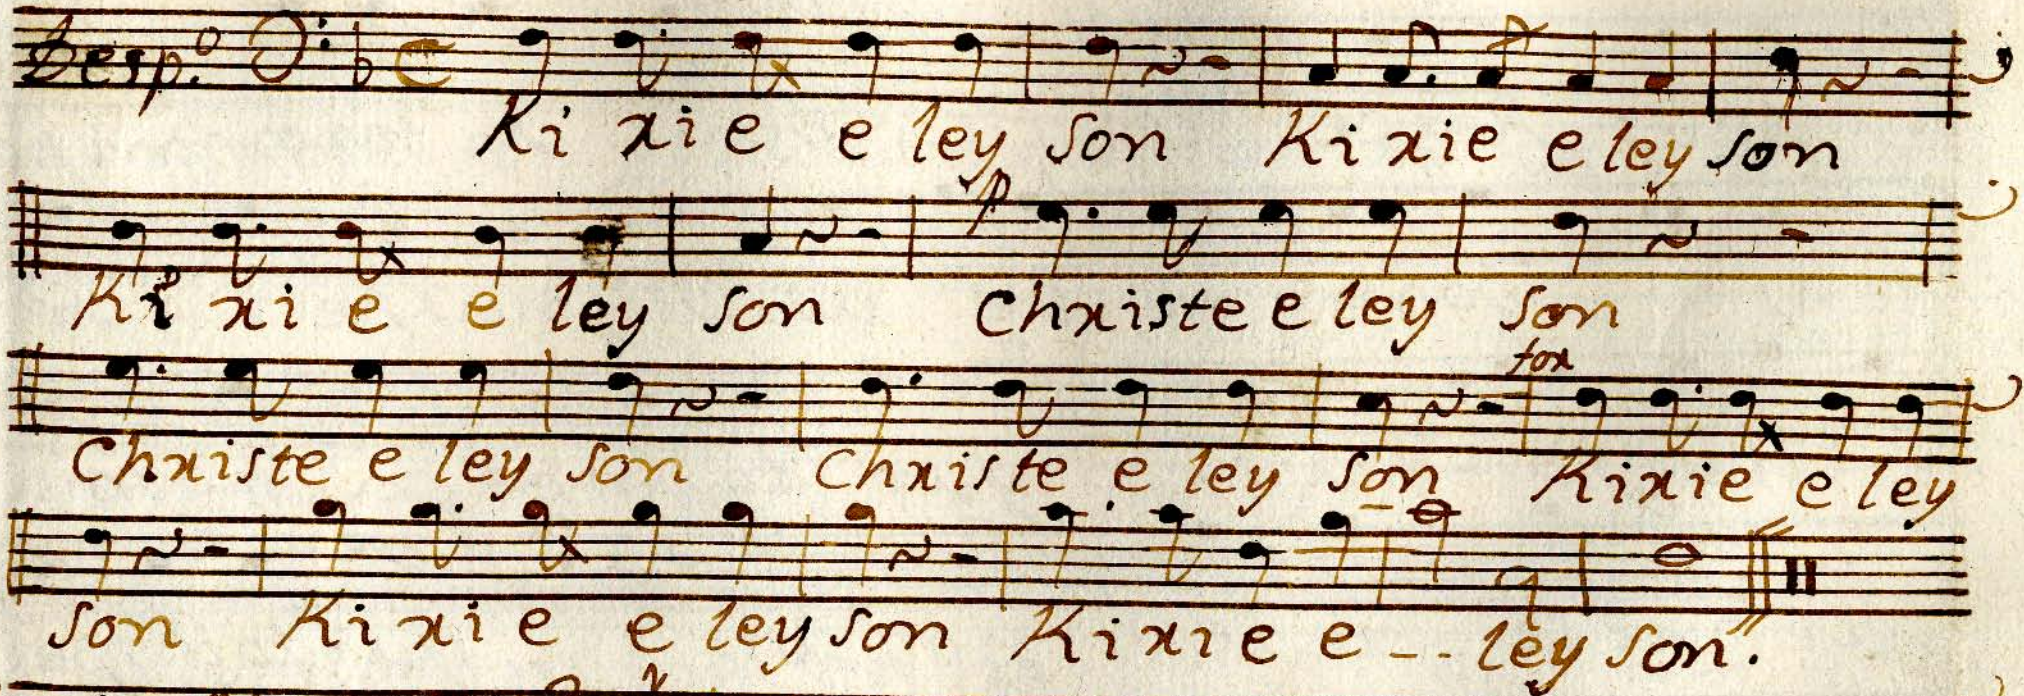 Desp.º
Kirie eleyson Kirie eleyson
Kirie eleyson
p
Christe eleyson
Christe eleyson Christe eleyson
for
Kirie eley
son Kirie eleyson Kirie e -- leyson.